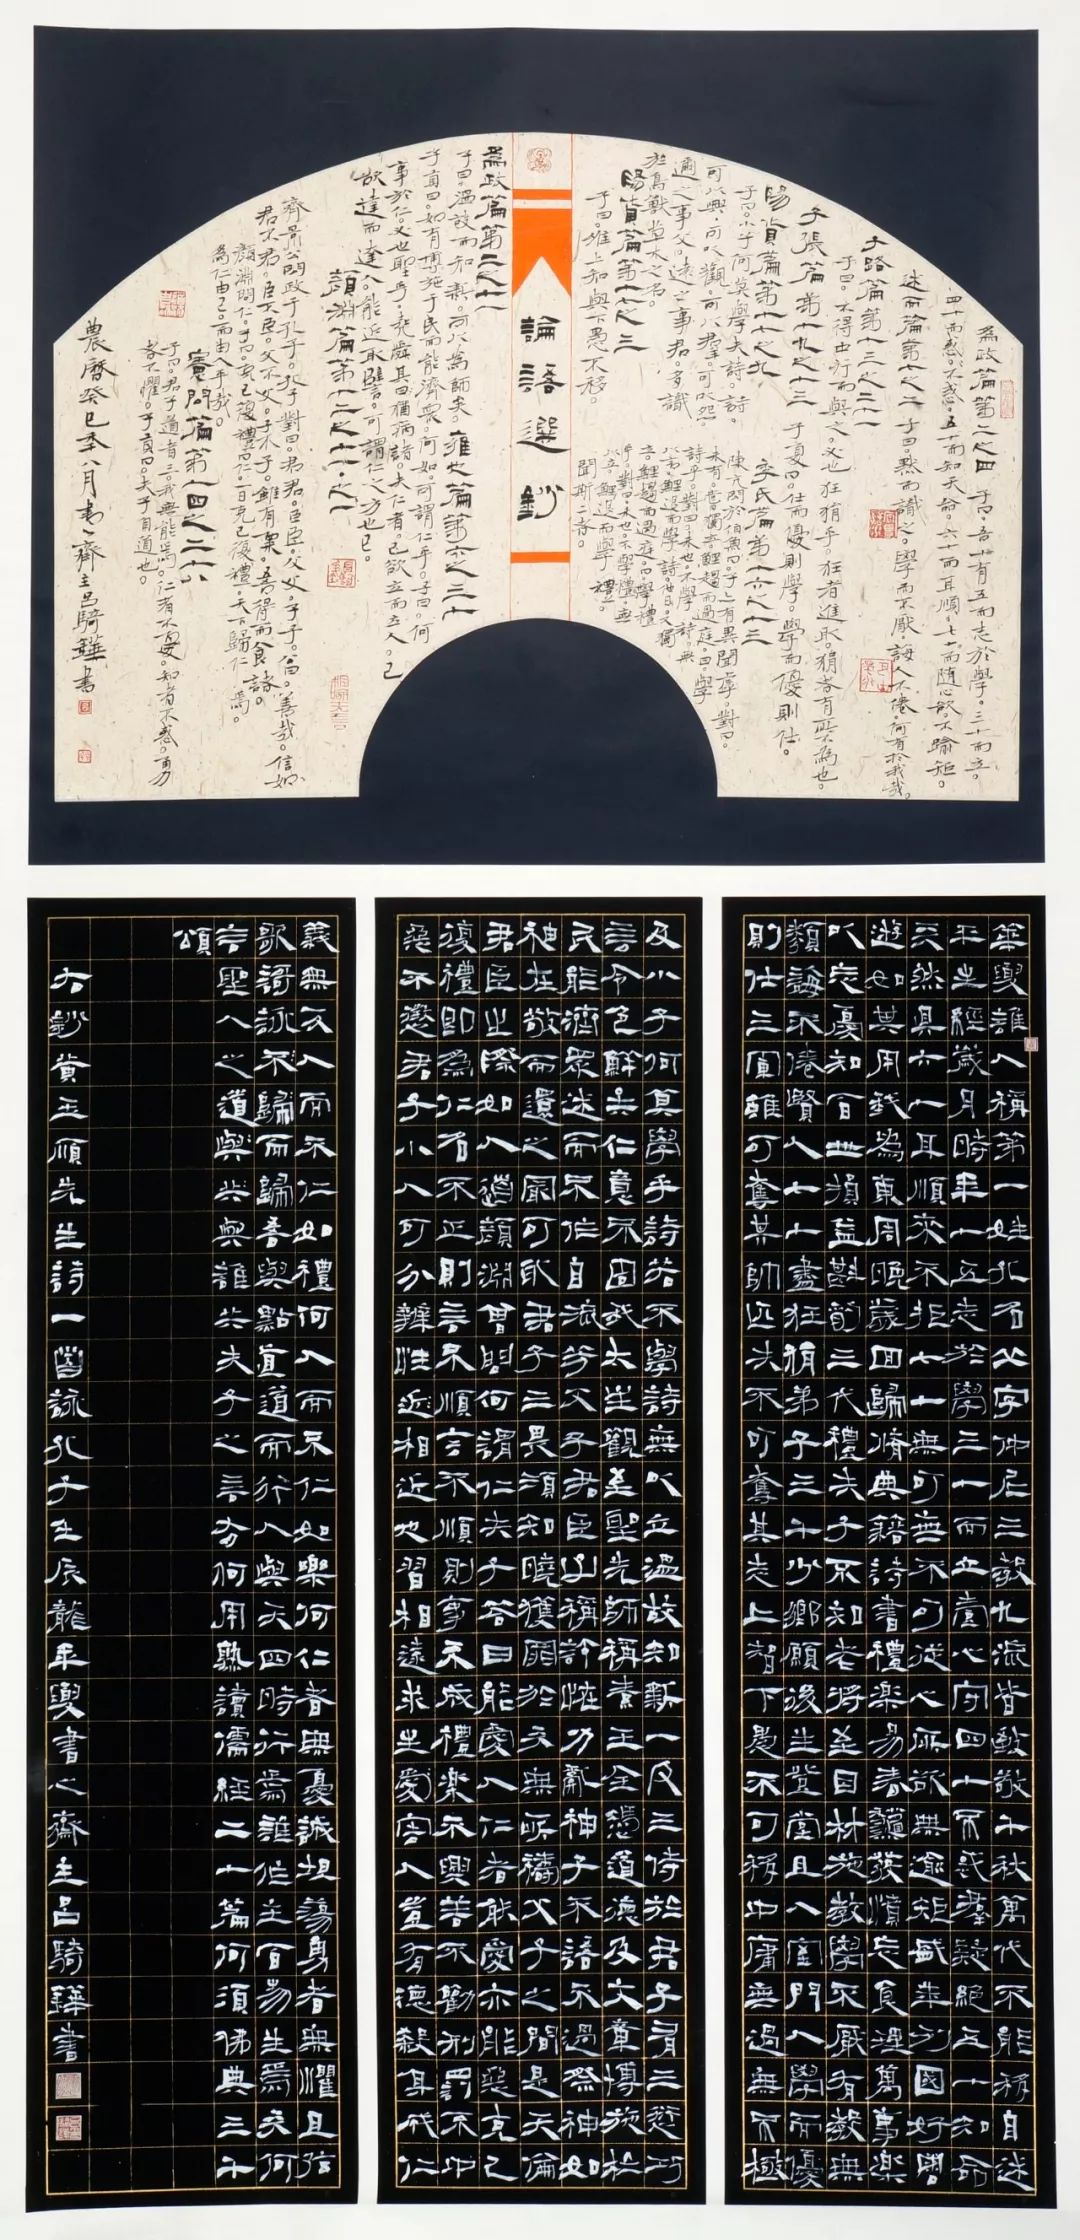 為政篇第二之四 子曰。吾十有五而志於學。三十而立。
四十而不惑。五十而知天命。六十而耳順。七十而隨心欲。不踰矩。
述而篇第七之二 子曰。默而識之。學而不厭。誨人不倦。何有於我哉。
子路篇第十三之二十一
子曰。不得中行而與之。必也狂狷乎。狂者進取。狷者有所不為也。
子張篇第十九之十三
子夏曰。仕而優則學。學而優則仕。
陽貨篇第十七之九
子曰。小子何莫學夫詩。詩
可以興。可以觀。可以群。可以怨。
邇之事父。遠之事君。多識
於鳥獸草木之名。
季氏篇第十六之十三
陳亢問於伯魚曰。子亦有異聞虖。對曰。
未有。嘗獨立。鯉趨而過庭。曰。學
詩乎。對曰。未也。不學詩。無
以言。鯉退而學詩。他日。又獨
立。鯉趨而過庭。曰。學禮
乎。對曰。未也。不學禮。無
以立。鯉退而學禮。
聞斯二者。
陽貨篇第十七之三
子曰。唯上知與下愚不移。
論語選鈔
為政篇第二之十一
子曰。溫故而知新。可以為師矣。雍也篇第六之三十
子貢曰。如有博施于民而能濟眾。何如。可謂仁乎。子曰。何
事於仁。必也聖乎。堯舜其猶病諸。夫仁者。己欲立而立人。己
欲達而達人。能近取譬。可謂仁之方也已。
顏淵篇第十二之十一之一
齊景公問政于孔子。孔子對曰。君君。臣臣。父父。子子。公曰。善哉。信如
君不君。臣不臣。父不父。子不子。雖有粟。吾得而食諸。
顏淵問仁。子曰。克己復禮曰仁。一日克己復禮。天下歸仁焉。
為仁由己。而由人乎哉。
憲問篇第十四之二十八
子曰。君子道者三。我無能焉。仁者不憂。知者不惑。勇
者不懼。子貢曰。夫子自道也。
農曆癸巳年八月 齋主呂騎鏵書
華輿誰人稱第一姓孔名丘字仲尼三教九流皆致敬千秋萬代不能移自述
平生經歲月時年十五志於學三十而立當心守四十不惑群疑絕五十知命
天然具六十耳順來不拒七十無可無不可從心所欲無逾矩盛年列國好周
遊如其用我為東周晚歲回歸脩典籍詩書禮樂易春龝發憤忘食理萬事樂
以忘憂知百世損益斟酌三代禮夫子不知老將至因材施教學不厭有教無
類誨不倦賢人七十盡狂狷弟子三千少鄉願後生登堂且入室門人學而優
則仕三軍雖可奪其帥匹夫不可奪其志上智下愚不可移中庸無過無不極
及小子何莫學乎詩若不學詩無以立溫故知新一反三侍於君子有三愆巧
言令色鮮矣仁意不固我太主觀至聖先師稱素王全憑道德及文章博施於
民能濟眾述而不作自流芳父子君臣必稱許怪力亂神子不語不過祭神如
神在敬而遠之罔可欺君子三畏須知曉獲罪於天無所禱父子之間是天倫
君臣之際如人道顏淵曾問何謂仁夫子答曰能愛人仁者能愛亦能惡克己
復禮即為仁名不正則言不順言不順則事不成禮樂不興善不勸刑罰不中
惡不懲君子小人可分辨性近相近也習相遠求生害人豈有德殺身成仁
義無反人而不仁如禮何人而不仁如樂何仁者無憂誠坦蕩勇者無懼且弦
歌謌詠不歸而歸吾與點直道而行人與天四時行焉誰作主百物生焉天何
言聖人之道與共與誰共夫子之言有何用熟讀儒經二十篇何須佛典三千
頌
右鈔黃玉順先生詩一首詠孔子壬辰龍年輿書心齋主呂騎鏵書